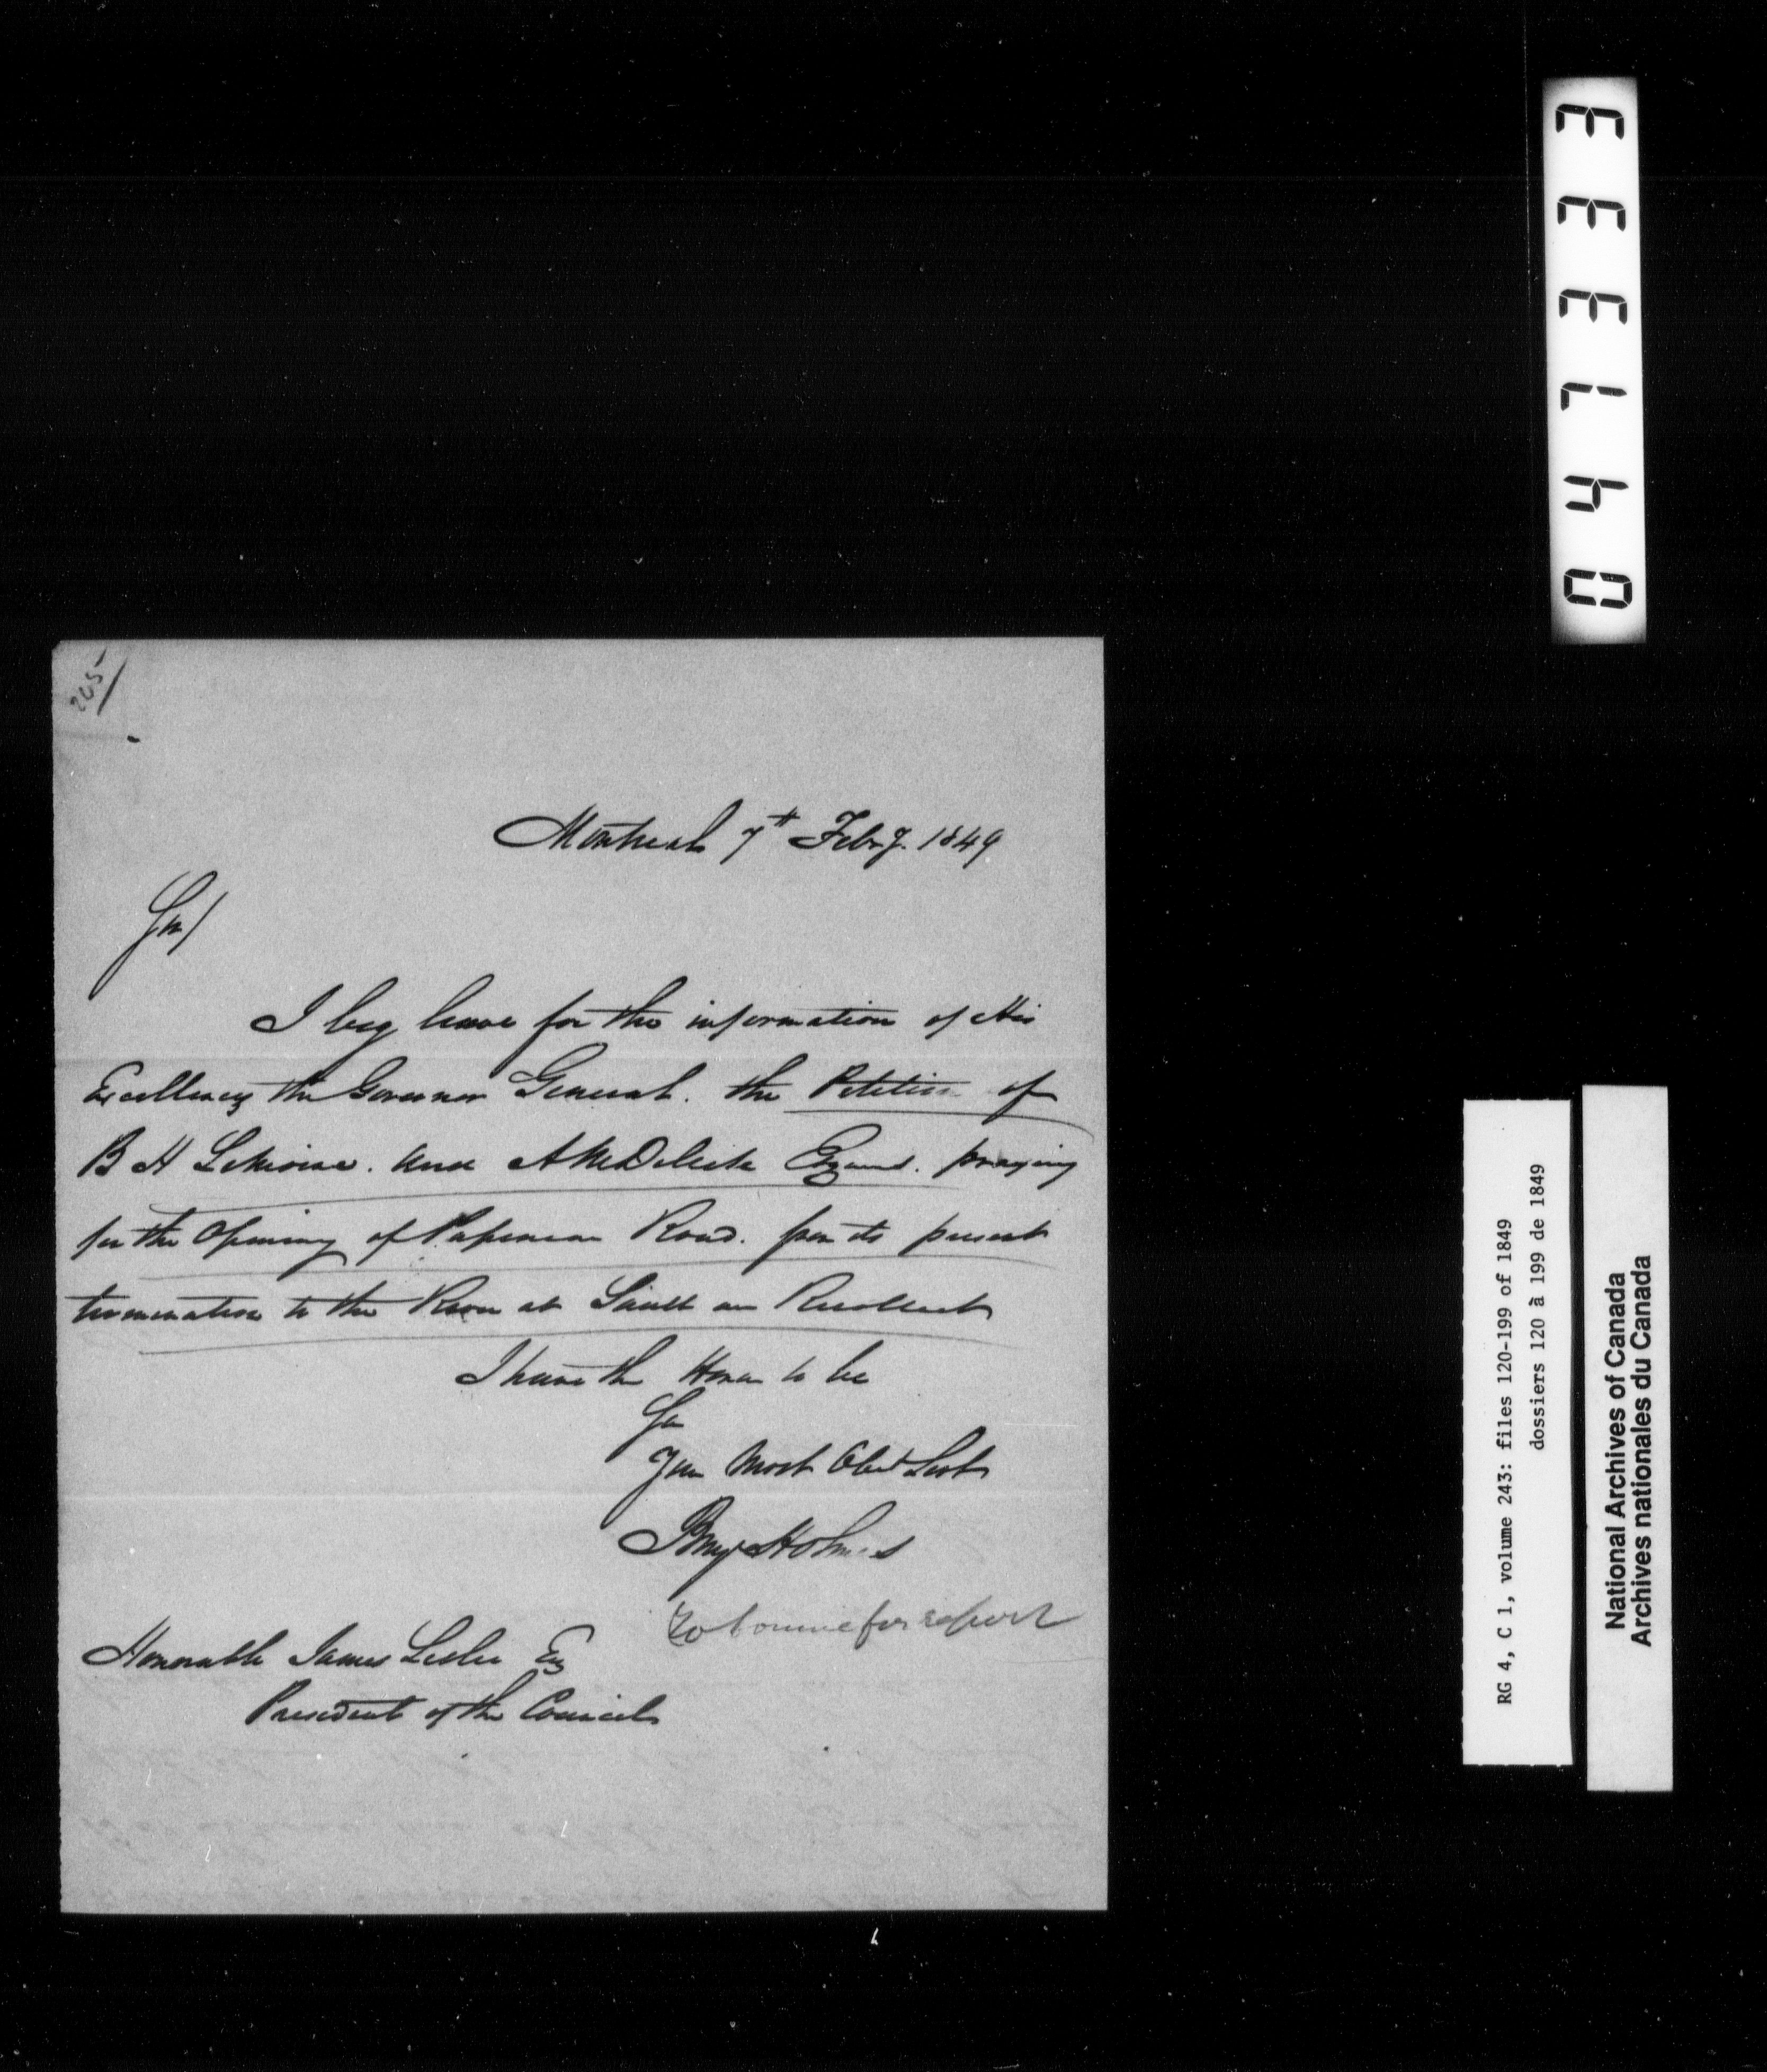 205/
Montreal 7th Feby. 1849
Sir/
I beg leave for the information of His
Excellency the Governor General. the Petition of
B H Lemoine. and A M Delisle Esquires. praying
for the Opening of Papineau Road. from its present
termination to the River at Sault au Recollect
I have the Honor to be
Sir
Your Most Obed Servt
Benj Holmes
for report
Honorable James Leslie Esq
President of the Council
043333
RG 4, C 1, volume 243: files 120-199 of 1849
dossiers 120 à 199 de 1849
National Archives of Canada
Archives nationales du Canada